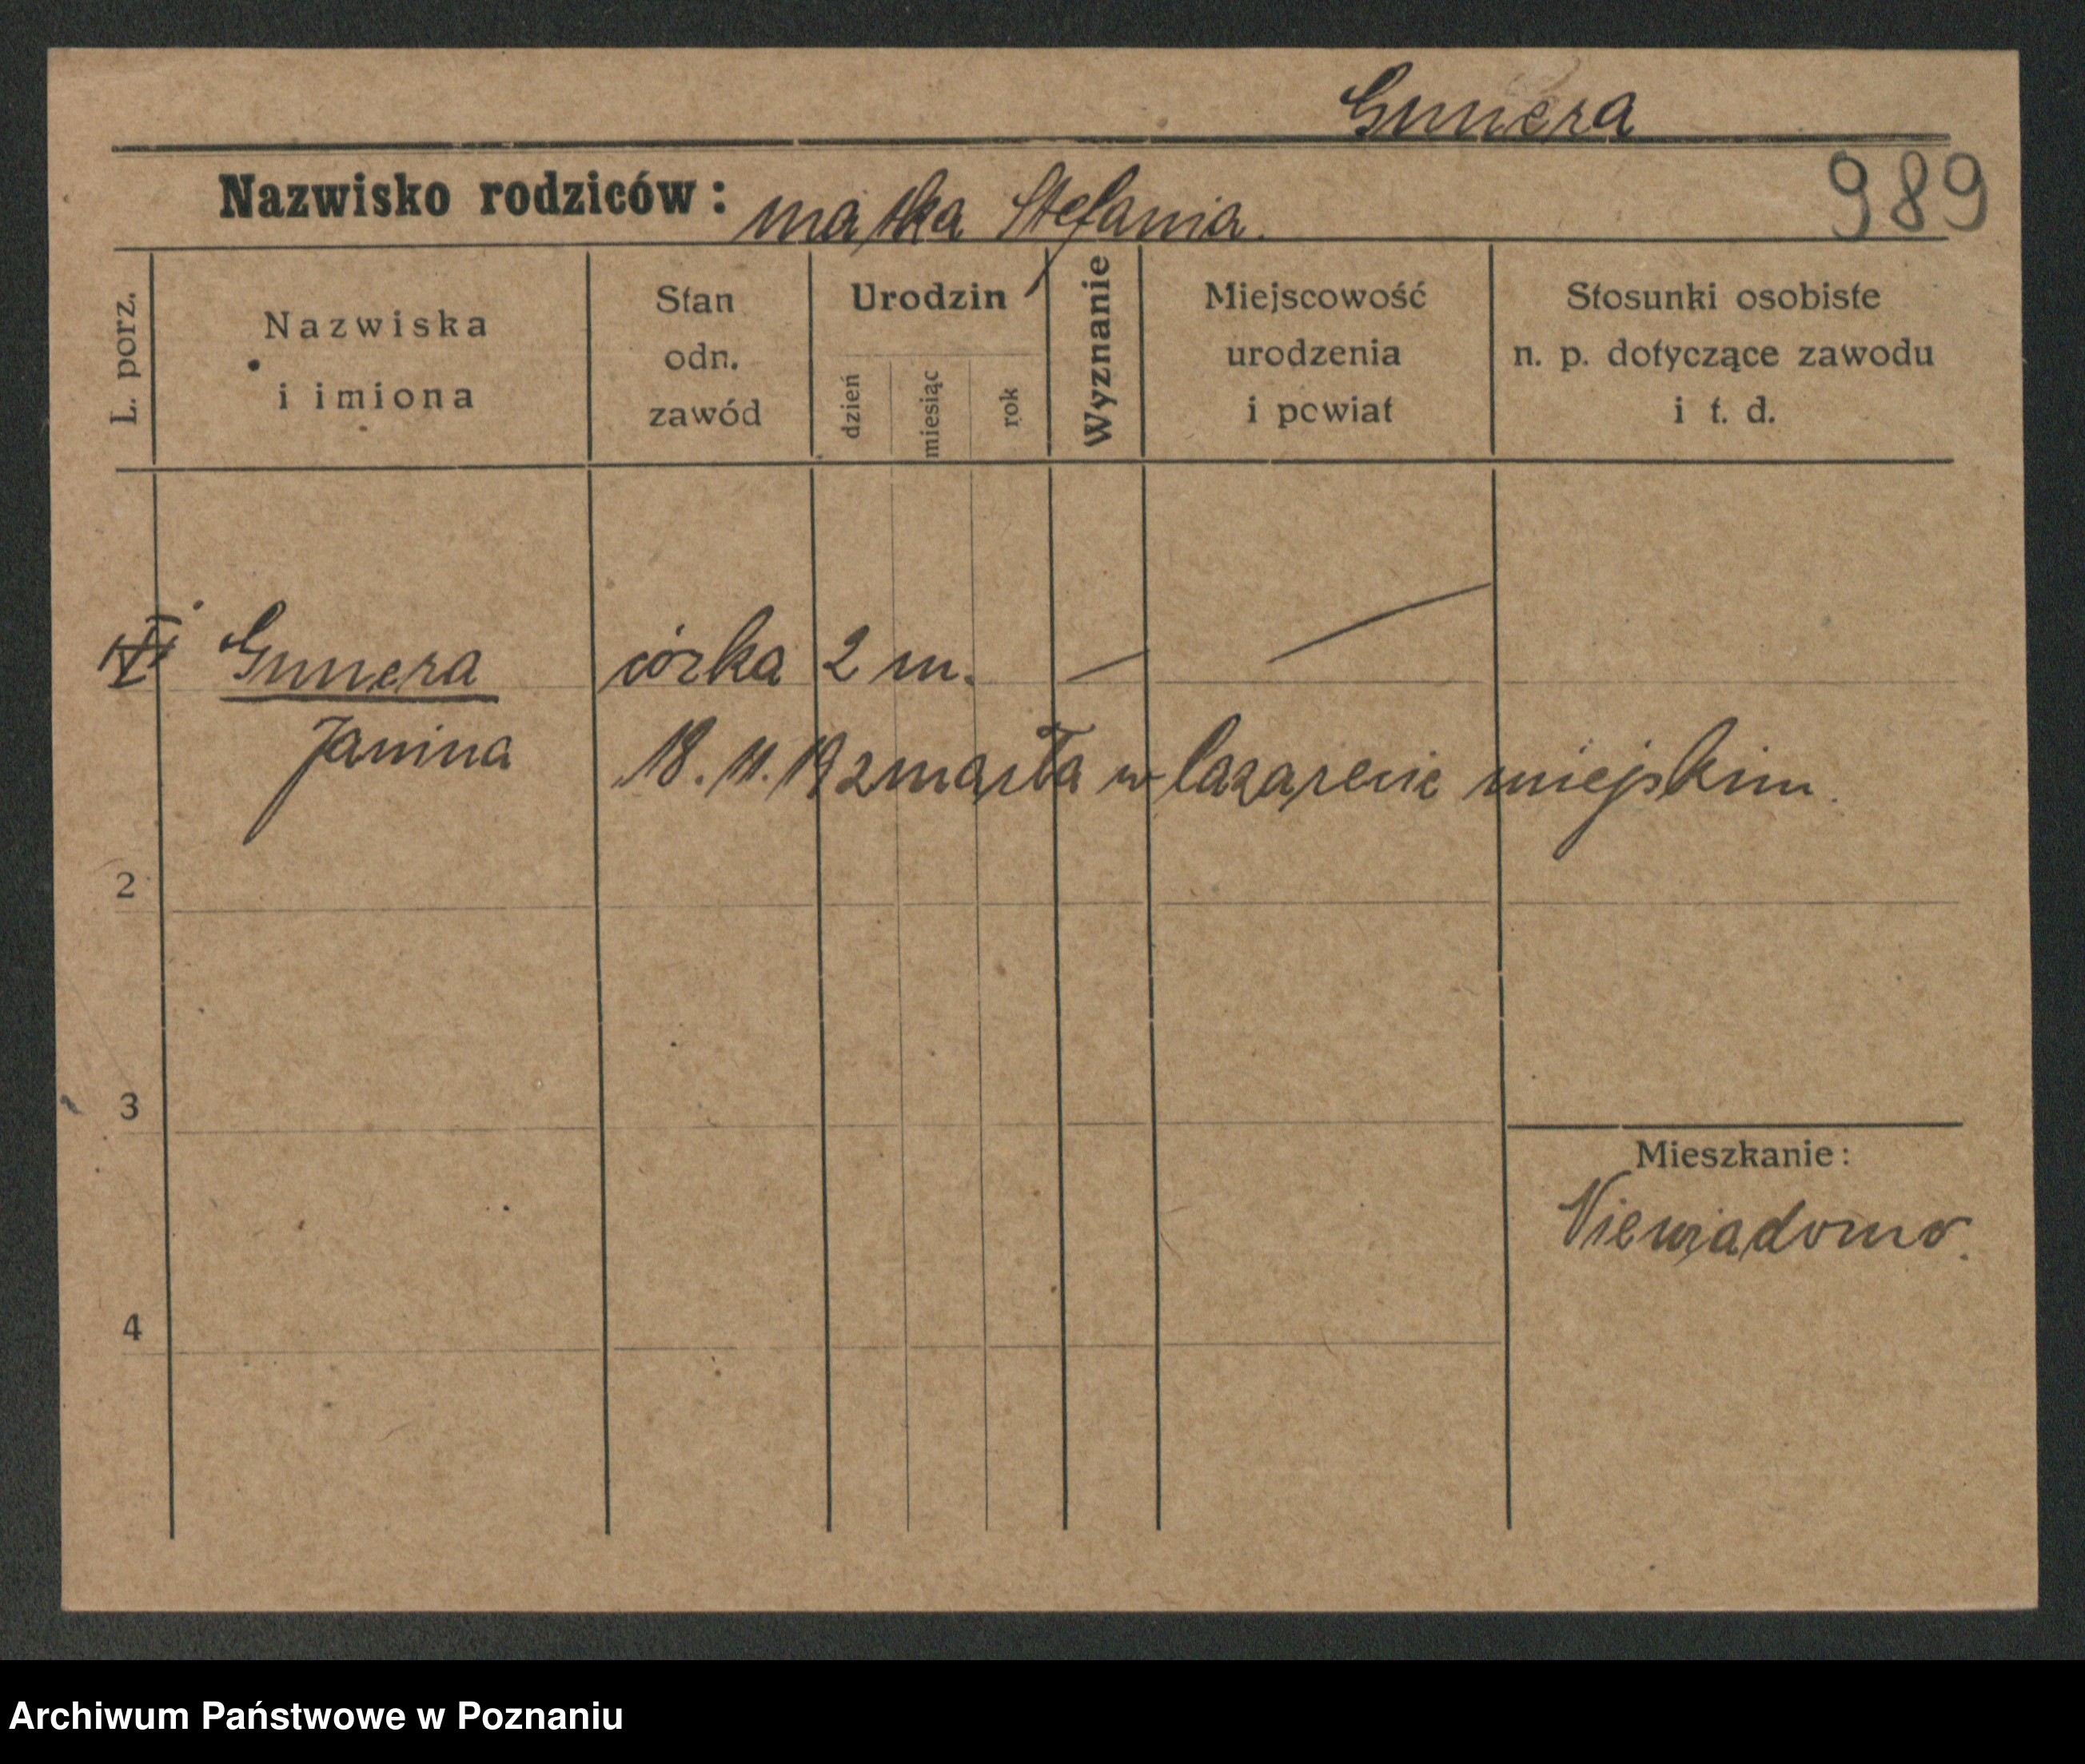 Gmnera
989
Nazwisko rodziców: matka Stefania.
L. porz.
Nazwiska
i imiona
Stan
odn.
zawód
Urodzin
dzień
miesiąc
rok
Wyznanie
Miejscowość
urodzenia
i powiat
Stosunki osobiste
n. p. dotyczące zawodu
i t. d.
Gmnera córka 2 m. — —
Janina 18. 11. 19 zmarła w lazarecie miejskim.
2
3
Mieszkanie:
Niewiadomo.
4
Archiwum Państwowe w Poznaniu